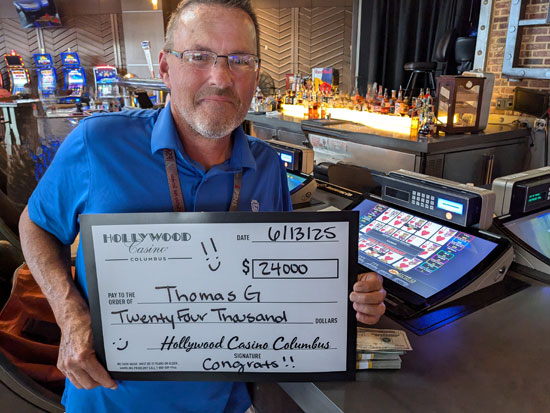 HOLLYWOOD
Casino
COLUMBUS
!!
DATE 6/13/25
$ 24000
PAY TO THE
ORDER OF Thomas G
Twenty Four Thousand DOLLARS
Hollywood Casino Columbus
SIGNATURE
Congrats!!